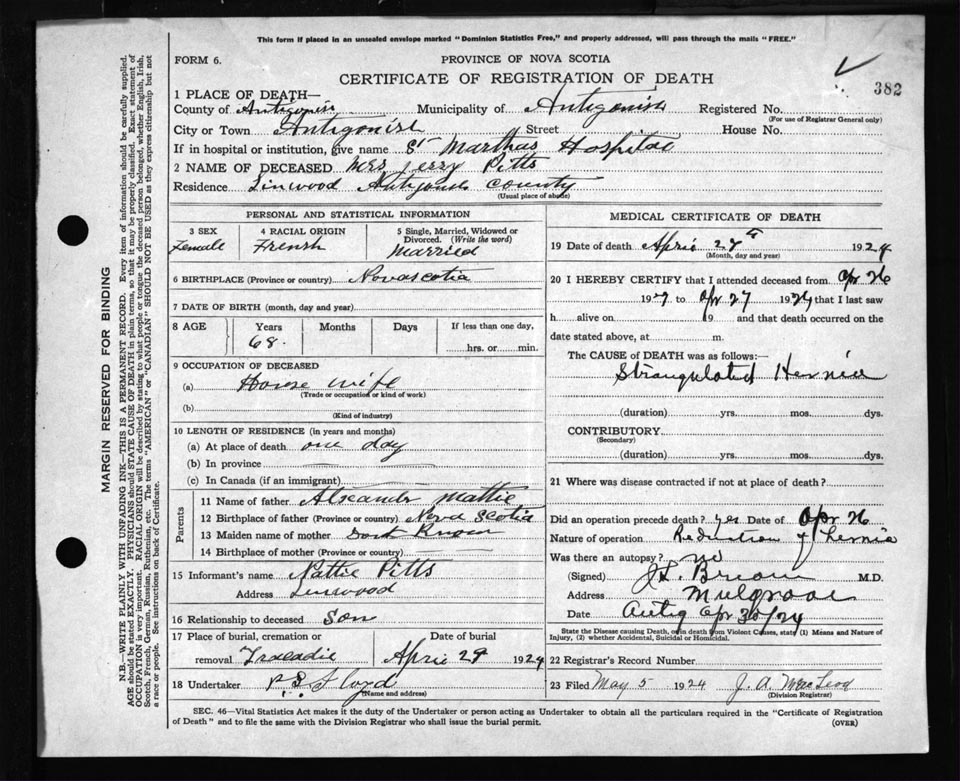 This form if placed in an unsealed envelope marked "Dominion Statistics Free," and properly addressed, will pass through the mails "FREE."
FORM 6.
PROVINCE OF NOVA SCOTIA
CERTIFICATE OF REGISTRATION OF DEATH
382
1 PLACE OF DEATH—
County of Antigonish Municipality of Antigonish Registered No.
(For use of Registrar General only)
City or Town Antigonish Street House No.
If in hospital or institution, give name St Marthas Hospital
2 NAME OF DECEASED Mrs Jerry Pitts
Residence Linwood Antigonish County
(Usual place of abode)
PERSONAL AND STATISTICAL INFORMATION
3 SEX Female
4 RACIAL ORIGIN French
5 Single, Married, Widowed or Divorced. (Write the word) Married
6 BIRTHPLACE (Province or country) Novascotia
7 DATE OF BIRTH (month, day and year)
8 AGE Years Months Days If less than one day,
68. hrs. or min.
9 OCCUPATION OF DECEASED
(a) House wife
(Trade or occupation or kind of work)
(b)
(Kind of industry)
10 LENGTH OF RESIDENCE (in years and months)
(a) At place of death one day
(b) In province
(c) In Canada (if an immigrant)
Parents
11 Name of father Alexander Mattie
12 Birthplace of father (Province or country) Nova Scotia
13 Maiden name of mother Dont Know
14 Birthplace of mother (Province or country)
15 Informant's name Nattie Pitts
Address Linwood
16 Relationship to deceased Son
17 Place of burial, cremation or Date of burial
removal Tracadie April 29 1924
18 Undertaker Floyd
(Name and address)
MEDICAL CERTIFICATE OF DEATH
19 Date of death April 27 1924
(Month, day and year)
20 I HEREBY CERTIFY that I attended deceased from Apr 26
192 to Apr 27 1924 that I last saw
h alive on 19 and that death occurred on the
date stated above, at m.
The CAUSE of DEATH was as follows:—
Strangulated Hernia
(duration) yrs. mos. dys.
CONTRIBUTORY
(Secondary)
(duration) yrs. mos. dys.
21 Where was disease contracted if not at place of death?
Did an operation precede death? yes Date of Apr 26
Nature of operation Reduction of Hernia
Was there an autopsy? no
(Signed) M.D.
Address Mulgrave
Date Antig Apr 30/24
State the Disease causing Death, or in death from Violent Causes, state (1) Means and Nature of
Injury, (2) whether Accidental, Suicidal or Homicidal.
22 Registrar's Record Number
23 Filed May 5 1924 J. A. MacLeod
(Division Registrar)
SEC. 46—Vital Statistics Act makes it the duty of the Undertaker or person acting as Undertaker to obtain all the particulars required in the "Certificate of Registration
of Death" and to file the same with the Division Registrar who shall issue the burial permit. (OVER)
MARGIN RESERVED FOR BINDING
N.B.—WRITE PLAINLY WITH UNFADING INK—THIS IS A PERMANENT RECORD. Every item of information should be carefully supplied.
AGE should be stated EXACTLY. PHYSICIANS should STATE CAUSE OF DEATH in plain terms, so that it may be properly classified. Exact statement of
OCCUPATION is very important. RACIAL ORIGIN will be described by stating to what people or tongue the deceased person belonged, whether English, Irish,
Scotch, French, German, Russian, Ruthenian, etc. The terms "AMERICAN" or "CANADIAN" SHOULD NOT BE USED as they express citizenship but not
a race or people. See instructions on back of Certificate.